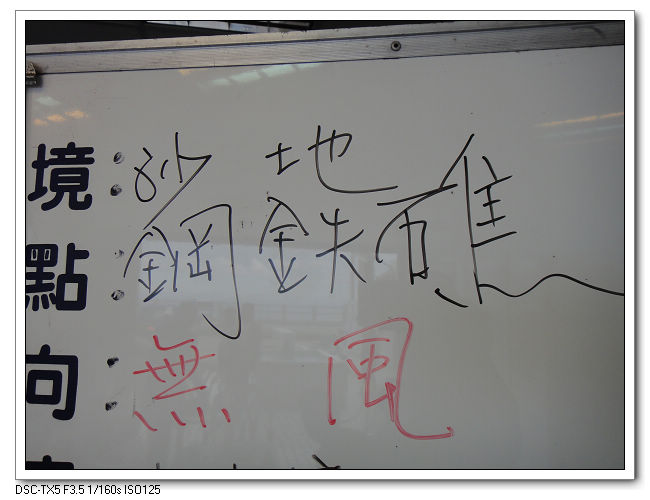 境：沙地
點：鋼鉄礁
向：無風
DSC-TX5 F3.5 1/160s ISO125